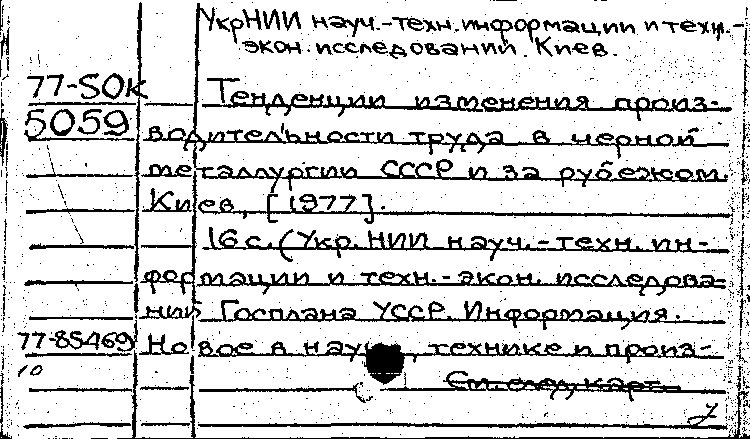 УкрНИИ науч.-техн. информации и техн.-
экон. исследований. Киев.
77-5ОК Тенденции изменения произ-
5059 водительности труда в черной
металлургии СССР и за рубежом.
Киев, [1977].
16 с. (Укр. НИИ науч.-техн. ин-
формации и техн.-экон. исследова-
ний Госплана УССР. Информация.
77-85469 Новое в науке, технике и произ-
10 См. след. карт.